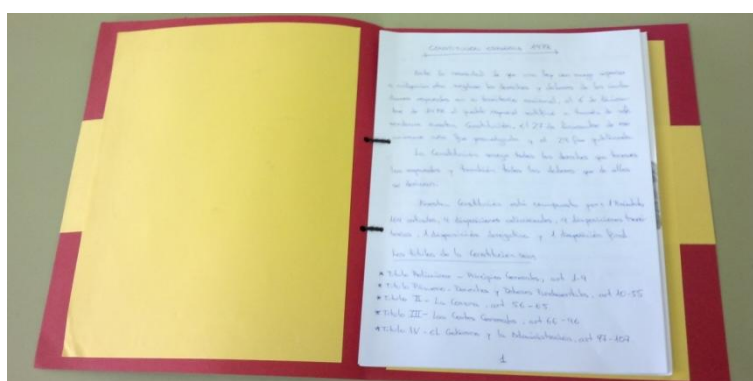 CONSTITUCIÓN ESPAÑOLA 1978
Ante la necesidad de que una ley con rango superior
a cualquier otra regulase los derechos y deberes de los ciuda-
danos españoles en su territorio nacional, el 6 de diciem-
bre de 1978 el pueblo español ratificó a través de
nuestra Constitución, el 27 de diciembre de ese
mismo año fue promulgada y el 29 fue publicada.
La Constitución recoge todos los derechos que tenemos
los españoles y también todos los deberes que de ellos
se derivan.
Nuestra Constitución está compuesta por: 1 Preámbulo
169 artículos, 4 disposiciones adicionales, 9 disposiciones transi-
torias, 1 disposición derogativa y 1 disposición final
Los títulos de la Constitución son:
* Título Preliminar - Principios Generales, art 1-9
* Título Primero - Derechos y Deberes Fundamentales, art 10-55
* Título II - La Corona, art 56-65
* Título III - Las Cortes Generales, art 66-96
* Título IV - el Gobierno y la Administración, art 97-107
1